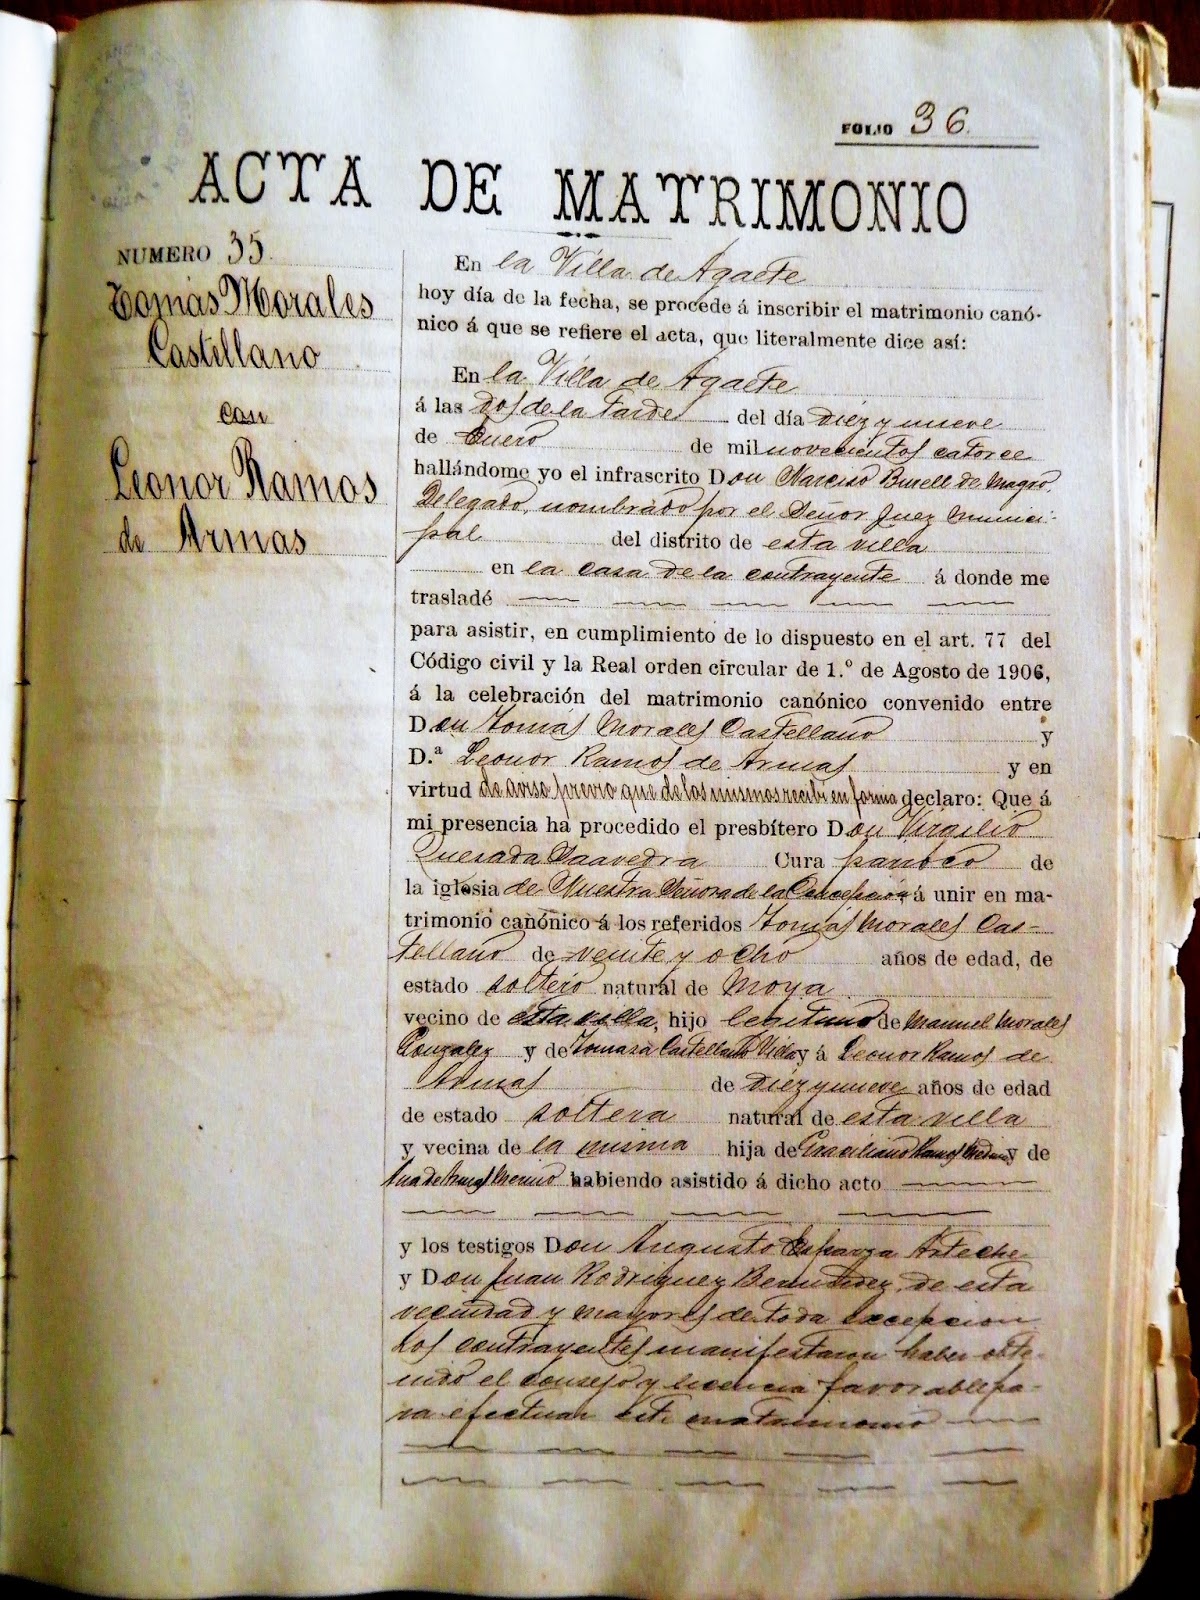 FOLIO 36.
ACTA DE MATRIMONIO
NUMERO 35.
Tomás Morales
Castellano
con
Leonor Ramos
de Armas
En la Villa de Agaete
hoy día de la fecha, se procede á inscribir el matrimonio canó-
nico á que se refiere el acta, que literalmente dice así:
En la Villa de Agaete
á las dos de la tarde del día diez y nueve
de Enero de mil novecientos catorce
hallándome yo el infrascrito Don Narciso Burell de Magro,
Delegado, nombrado por el Señor Juez Munici-
pal del distrito de esta villa
en la casa de la contrayente á donde me
trasladé
para asistir, en cumplimiento de lo dispuesto en el art. 77 del
Código civil y la Real orden circular de 1.º de Agosto de 1906,
á la celebración del matrimonio canónico convenido entre
Don Tomás Morales Castellano y
D.ª Leonor Ramos de Armas y en
virtud de aviso previo que de los mismos recibí en forma declaro: Que á
mi presencia ha procedido el presbítero Don Virgilio
Quesada Saavedra Cura párroco de
la iglesia de Nuestra Señora de la Concepción á unir en ma-
trimonio canónico á los referidos Tomás Morales Cas-
tellano de veinte y ocho años de edad, de
estado soltero natural de Moya
vecino de esta villa, hijo legitimo de Manuel Morales
Gonzalez y de Tomasa Castellano Villa y á Leonor Ramos de
Armas de diez y nueve años de edad
de estado soltera natural de esta villa
y vecina de la misma hija de Graciliano Ramos Medina y de
Ana de Armas Merino habiendo asistido á dicho acto
y los testigos Don Augusto Esparza Arteche
y Don Juan Rodriguez Bermudez, de esta
vecindad y mayores de toda excepcion
Los contrayentes manifestaron haber obte-
nido el consejo y licencia favorable pa-
ra efectuar este matrimonio